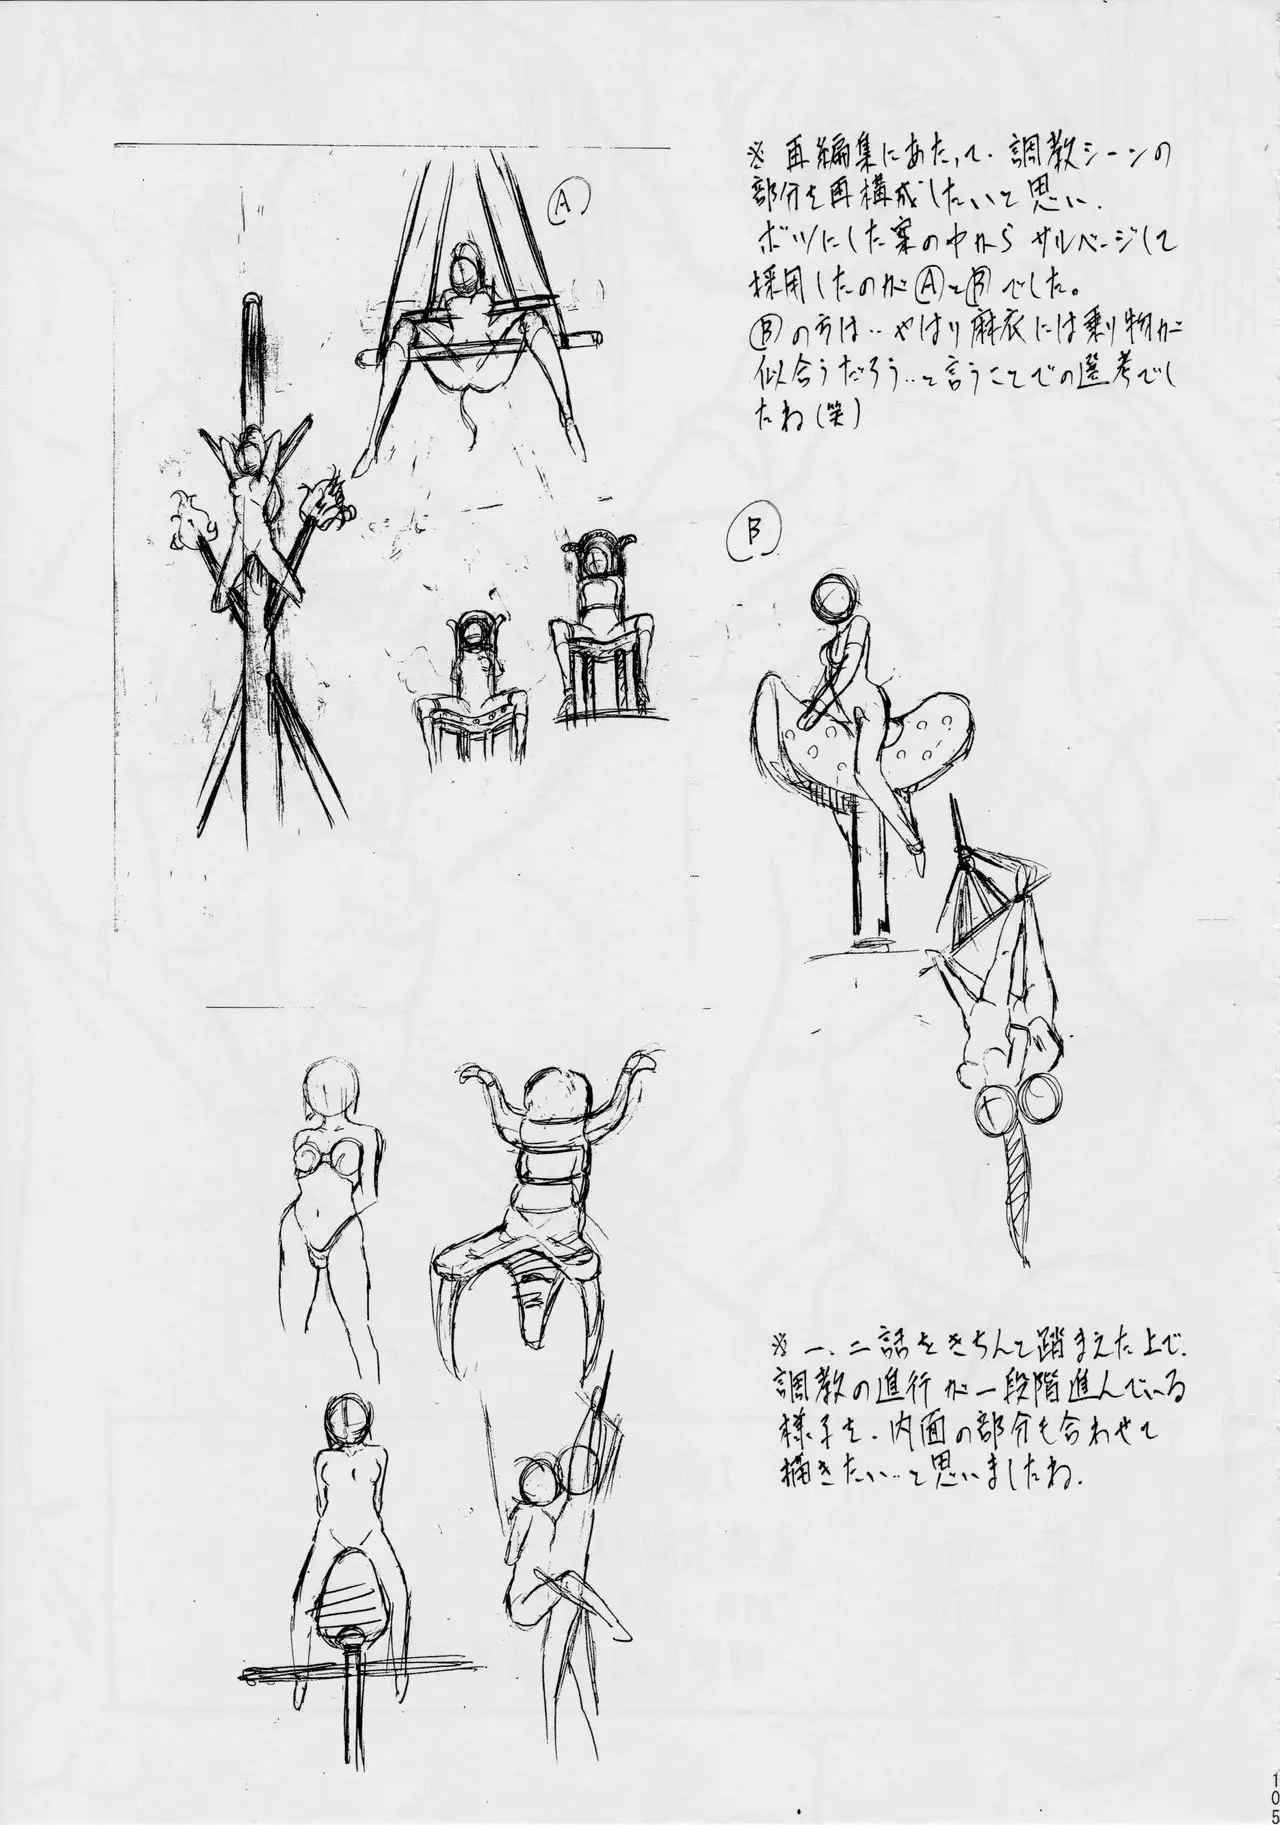 ※ 再編集にあたって、調教シーンの
部分を再構成したいと思い、
ボツにした案の中から サルベージして
採用したのがⒶとⒷでした。
Ⓑの方は‥やはり麻衣には乗り物が
似合うだろう‥と言うことでの選考でし
たね(笑)
Ⓐ
Ⓑ
※一、二話をきちんと踏まえた上で、
調教の進行が一段階進んでいる
様子を、内面の部分も合わせて
描きたい‥と思いましたね。
105